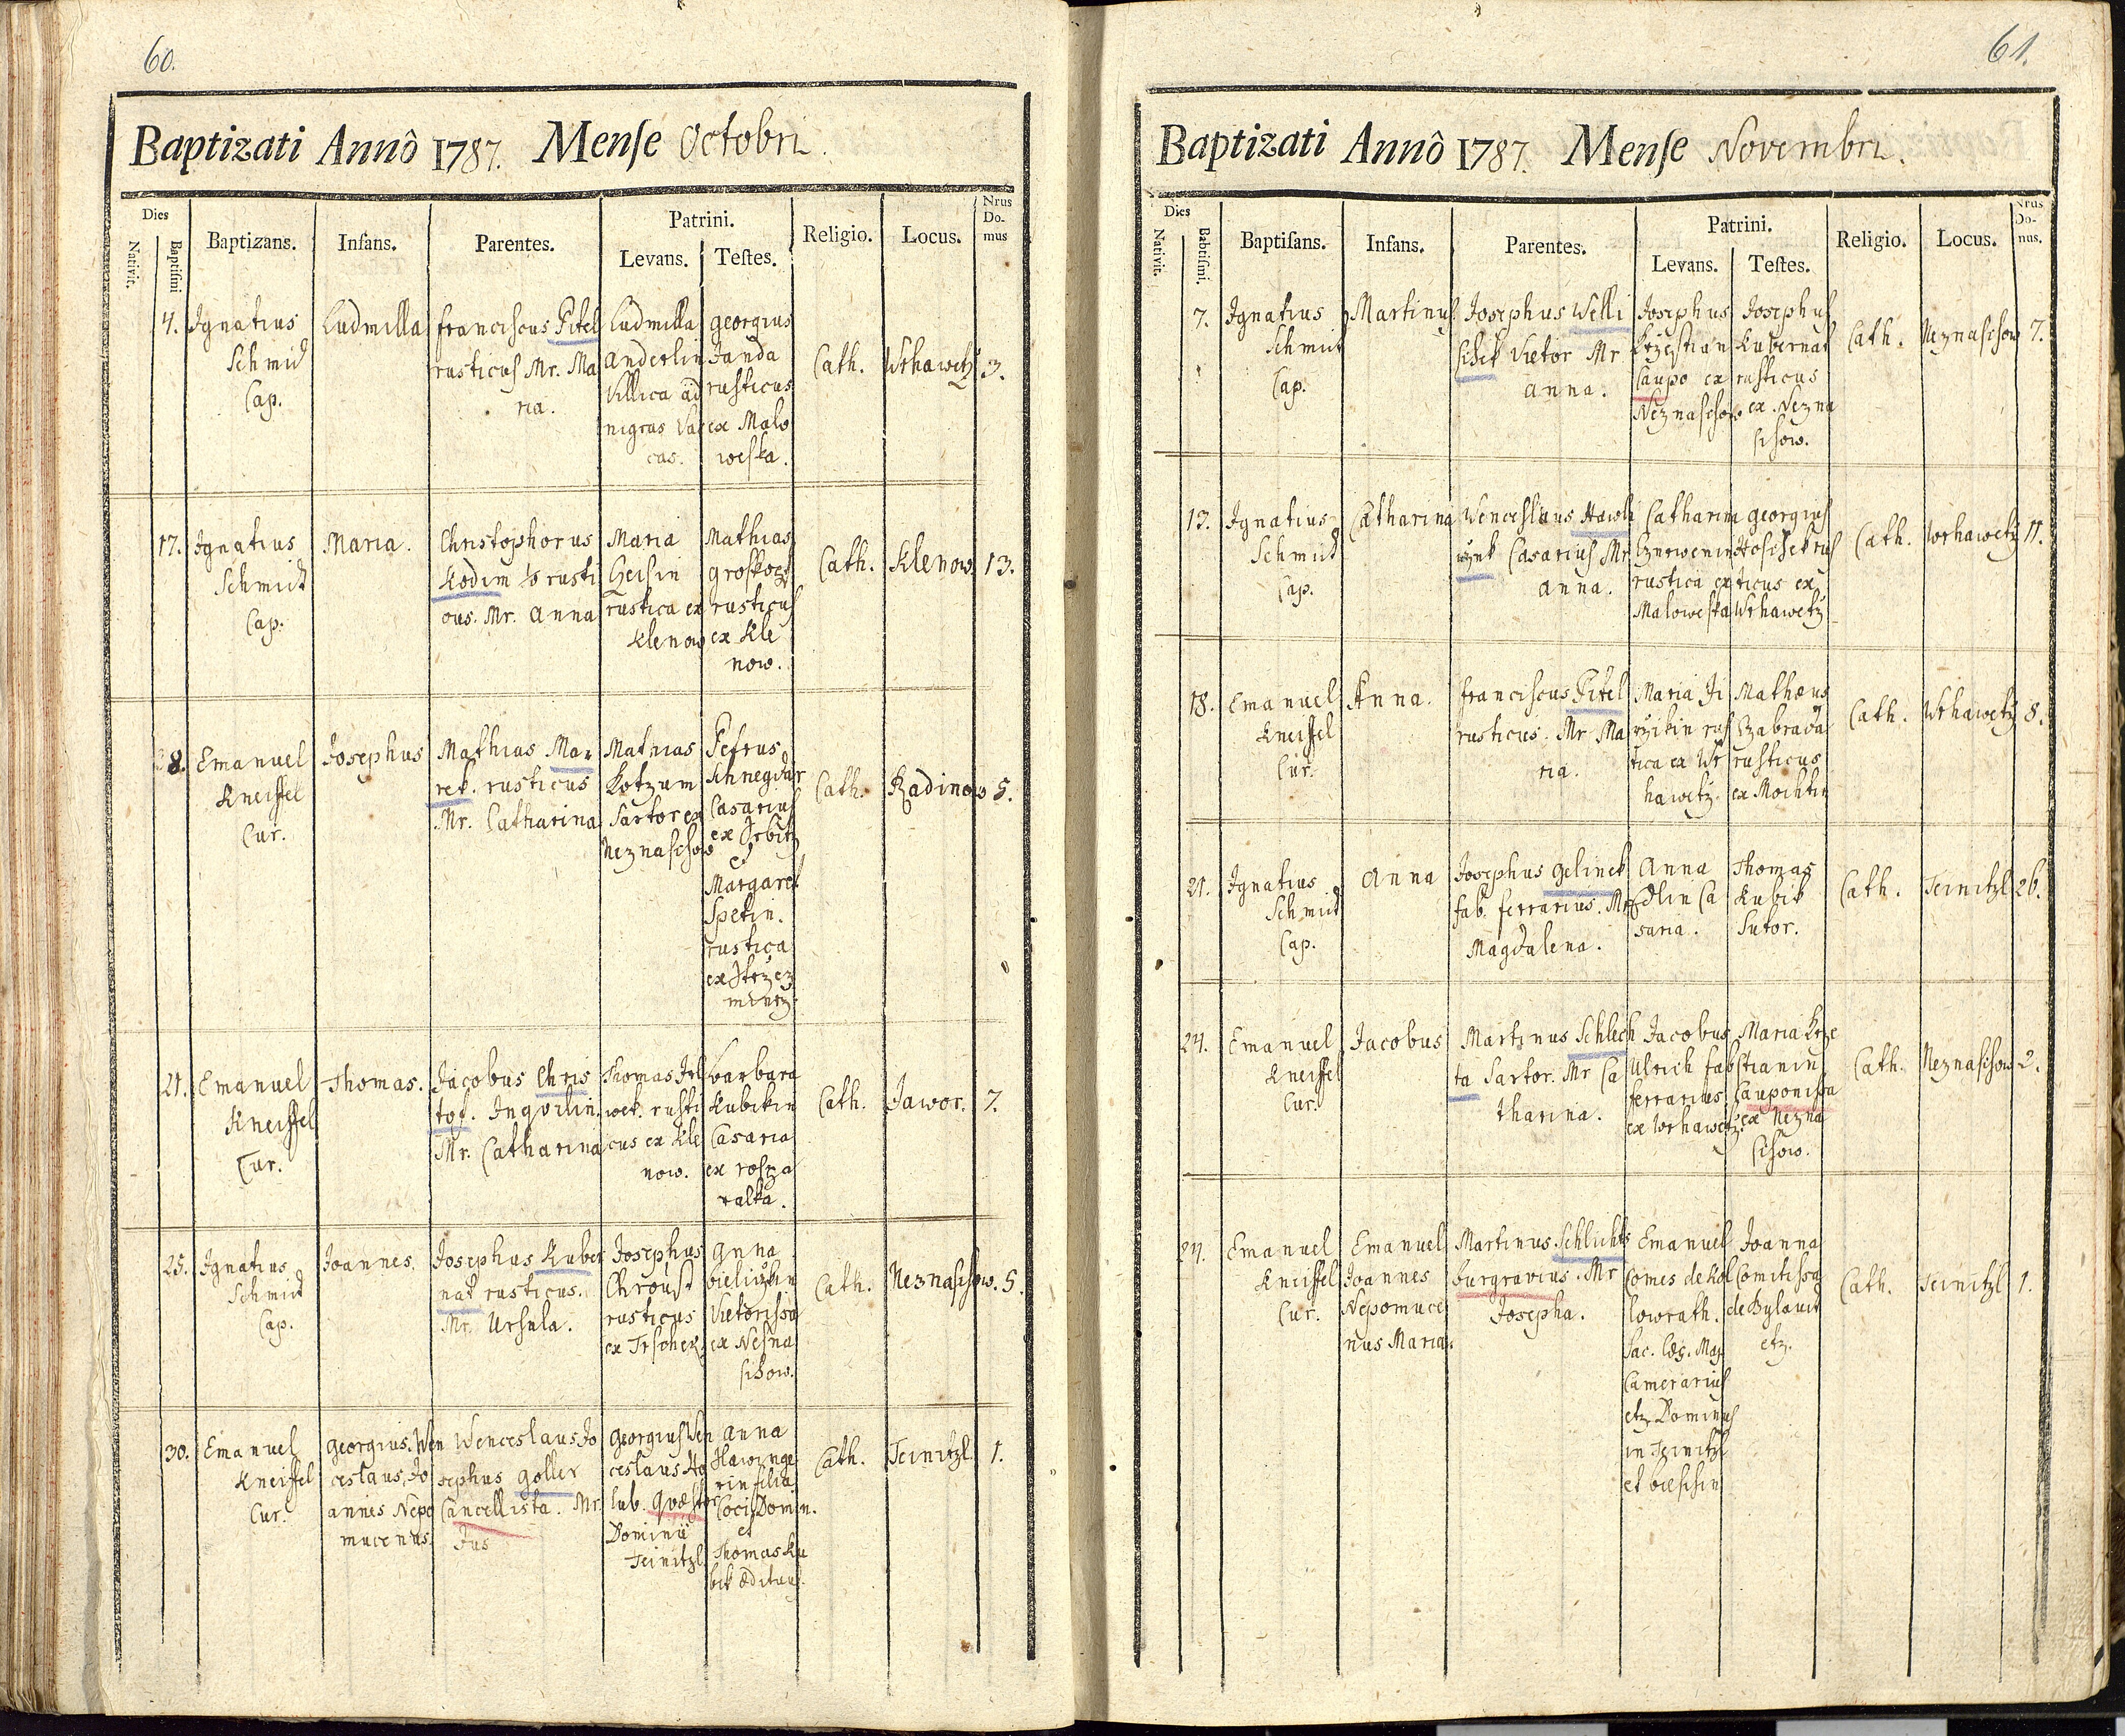 60.
Baptizati Annô 1787. Mense Octobri.
Dies
Nativit.
Baptiſmi
Baptizans.
Infans.
Parentes.
Patrini.
Levans.
Teſtes.
Religio.
Locus.
Nrus
Do-
mus
4.
Ignatius
Schmid
Cap.
Ludmilla
Franciscus Pitel
rusticus Mr. Ma
ria.
Ludmilla
Anderlin
Villica ad
nigras Vac
cas.
Georgius
Janda
rusticus
ex Malo
weska.
Cath.
Wrhawetz
3.
17.
Ignatius
Schmid
Cap.
Maria.
Christophorus
Kodim rusti
cus. Mr. Anna
Maria
rustica ex
Klenow
Mathias
rusticus
ex Kle
now.
Cath.
Klenow.
13.
8.
Emanuel
Kneissel
Cur.
Josephus
Mathias Ma
rek. rusticus
Mr. Catharina
Mathias
Kotzum
Sartor ex
Neznaschow
Petrus
Casarius
ex
et
Margaret
Spetin.
rustica
Cath.
Radinow
5.
21.
Emanuel
Kneissel
Cur.
Thomas.
Jacobus Chris
tof. Inqvilin.
Mr. Catharina
Thomas
wek. rusti
cus ex Kle
now.
Barbara
Kubikin
Casaria
ex
Cath.
Jawor.
7.
25.
Ignatius
Schmid
Cap.
Joannes.
Josephus Kuber
nat rusticus.
Mr. Ursula.
Josephus
Chroust
rusticus
ex
Anna
Vietorissa
ex Nesna
schow.
Cath.
Neznaschow.
5.
30.
Emanuel
Kneissel
Cur.
Georgius Wen
ceslaus Jo
annes Nepo
mucenus
Wenceslaus Jo
sephus Goller
Cancellista. Mr.
Georgius Wen
ceslaus Ho
lub. Qvæstor
Dominii
Teinitzl
Anna
rin filia
Coci Domin.
et
Thomas Ku
bik ædituus.
Cath.
Teinitzl
1.
61.
Baptizati Annô 1787. Mense Novembri.
Dies
Nativit.
Babtiſmi.
Baptiſans.
Infans.
Parentes.
Patrini.
Levans.
Teſtes.
Religio.
Locus.
Nrus
Do-
nus.
7.
Ignatius
Schmid
Cap.
Martinus
Josephus Welli
schek Vietor Mr
Anna.
Josephus
Krzestian
Caupo ex
Neznaschow
Josephus
Kubernat
rusticus
ex. Nezna
schow.
Cath.
Neznaschow
7.
13.
Ignatius
Schmid
Cap.
Catharina
Wenceslaus Hawli
Casarius Mr
Anna.
Catharina
rustica ex
Maloweska
Georgius
ticus ex
Wrhawetz
Cath.
Wrhawetz
11.
18.
Emanuel
Kneissel
Cur.
Anna.
Franciscus Pitel
rusticus. Mr Ma
ria.
Maria Ji
rzikin rus
tica ex Wr
hawetz.
Mathæus
Zabrada
rusticus
ex Mochtin
Cath.
Wrhawetz
8.
21.
Ignatius
Schmid
Cap.
Anna
Josephus Gelinek
fab. ferrarius. Mr
Magdalena.
Anna
Edlin Ca
saria.
Thomas
Kubik
Sutor.
Cath.
Teinitzl
26.
24.
Emanuel
Kneissel
Cur.
Jacobus
Martinus Schlech
ta Sartor. Mr Ca
tharina.
Jacobus
Ulrich fab
ferrarius
ex Wrhawetz.
Maria Krze
stianin
Cauponissa
ex Nezna
schow.
Cath.
Neznaschow
2.
27.
Emanuel
Kneissel
Cur.
Emanuel
Joannes
Nepomuce
nus Maria.
Martinus Schlichts
burgravius. Mr
Josepha.
Emanuel
Comes de Kol
lowrath.
Sac. Cæs. Maj.
Camerarius
etz Dominus
in Teinitzl
et
Joanna
Comitissa
de Bylandt
etz.
Cath.
Teinitzl
1.